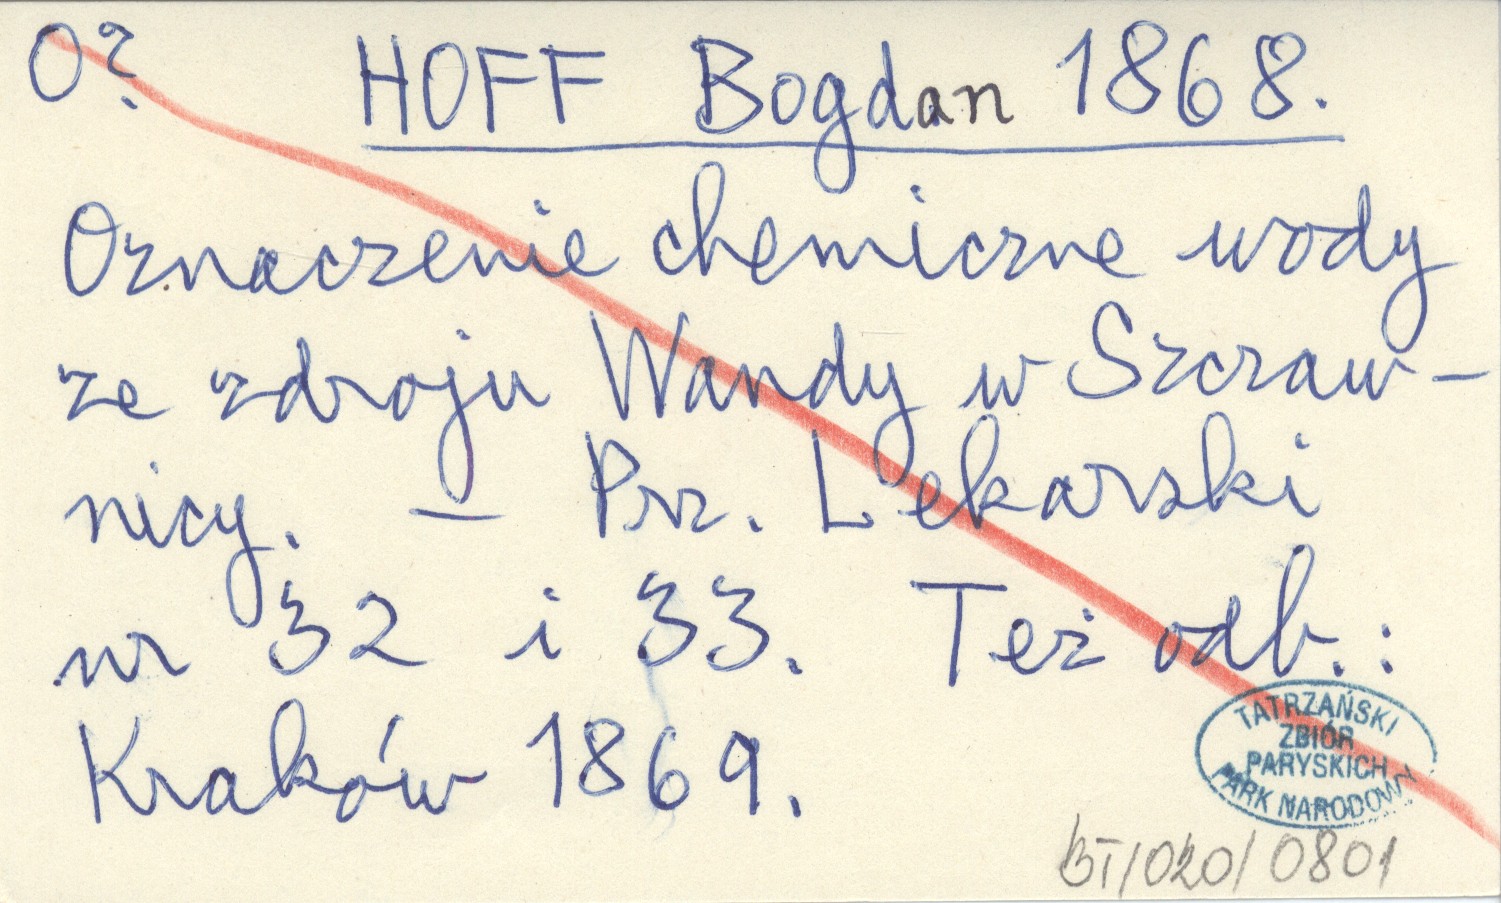 O? HOFF Bogdan 1868.
Oznaczenie chemiczne wody
ze zdroju Wandy w Szczaw-
nicy. — Prz. Lekarski
nr 32 i 33. Też odb.:
Kraków 1869.
TATRZAŃSKI
ZBIÓR
PARYSKICH
PARK NARODOWY
BT/020/0801